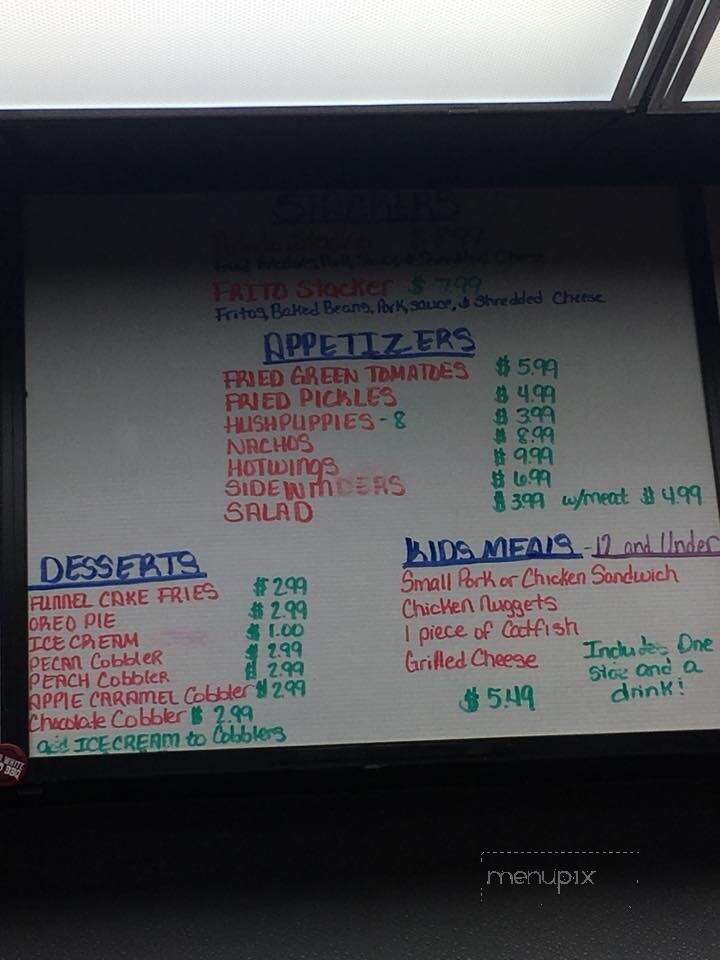 STACKERS
FRITO Stacker $7.99
Fritos, Baked Beans, Pork, sauce, & Shredded Cheese
APPETIZERS
FRIED GREEN TOMATOES $5.99
FRIED PICKLES $4.99
HUSHPUPPIES-8 $3.99
NACHOS $8.99
HOTWINGS $9.99
SIDEWINDERS $6.99
SALAD $3.99 w/meat $4.99
DESSERTS
FUNNEL CAKE FRIES $2.99
OREO PIE $2.99
ICE CREAM $1.00
PECAN Cobbler $2.99
PEACH Cobbler $2.99
APPLE CARAMEL Cobbler $2.99
Chocolate Cobbler $2.99
add ICE CREAM to Cobblers
KIDS MEALS - 12 and Under
Small Pork or Chicken Sandwich
Chicken Nuggets
1 piece of Catfish
Grilled Cheese
$5.49
Includes One
Side and a
drink!
WHITE
BBQ
menupix